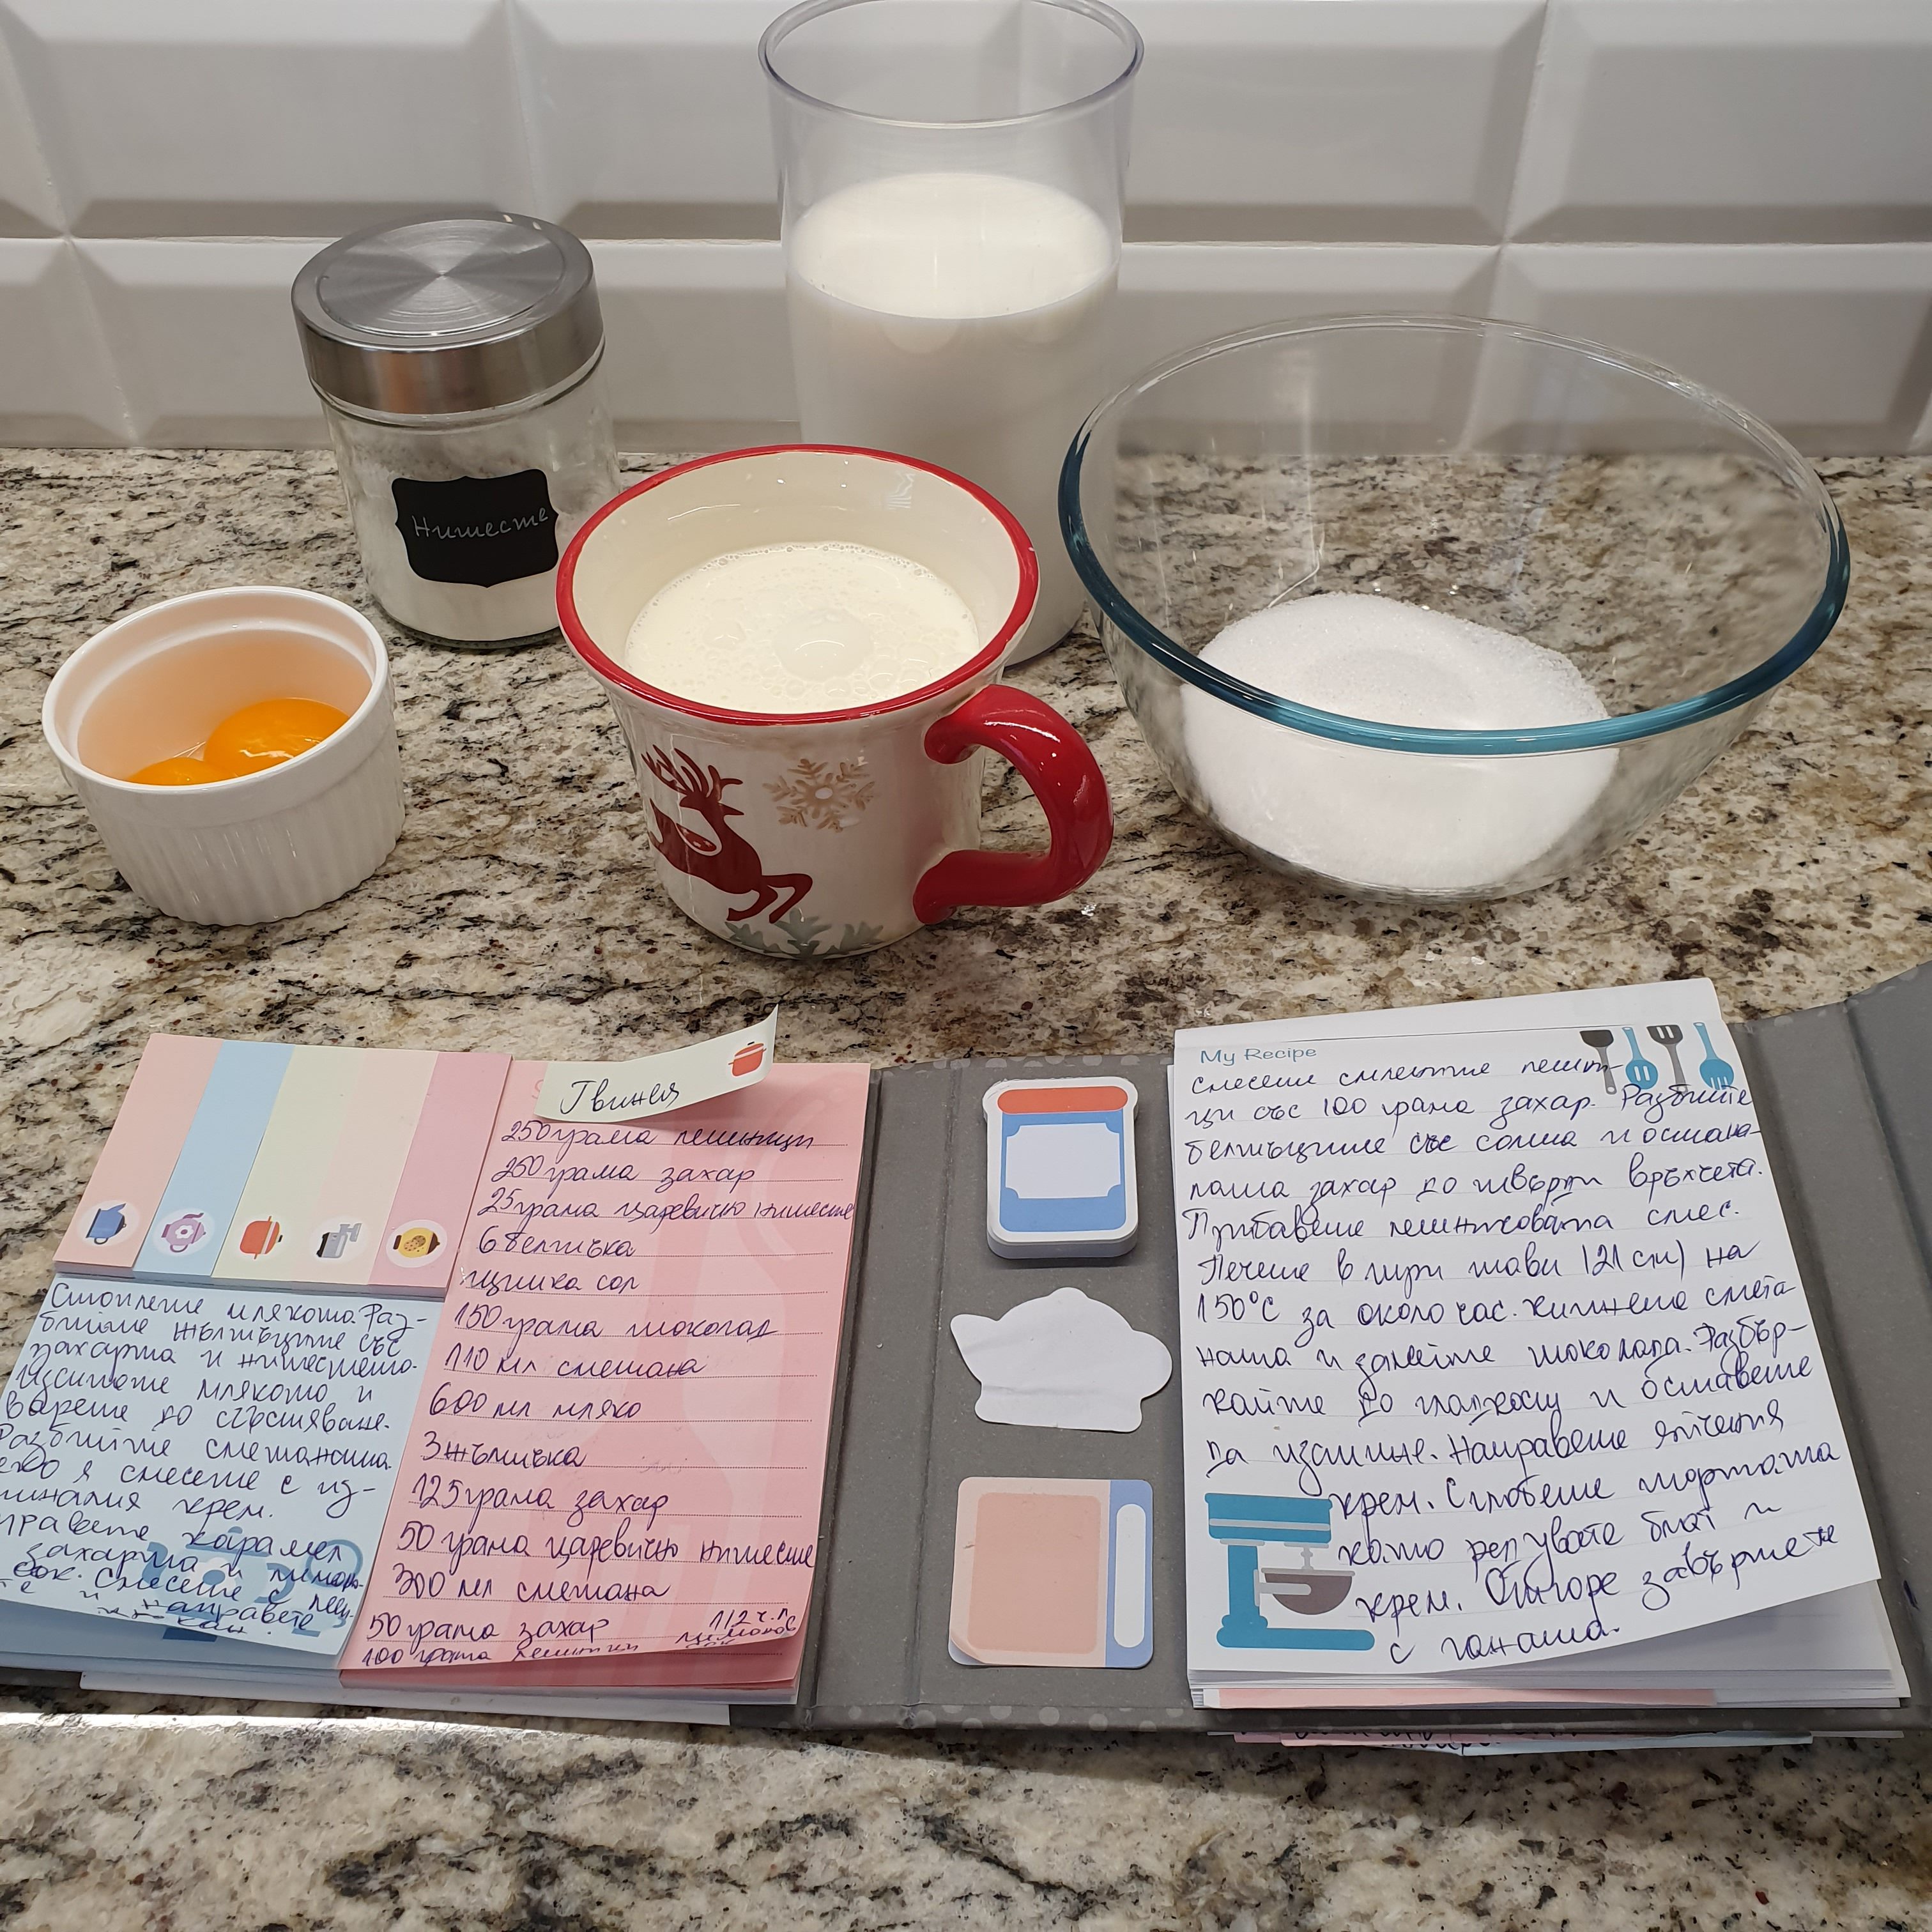 Нишесте
Гвинея
250 грама лешници
250 грама захар
25 грама царевично нишесте
6 белтъка
щипка сол
150 грама шоколад
110 мл сметана
600 мл мляко
3 жълтъка
125 грама захар
50 грама царевично нишесте
300 мл сметана
50 грама захар
1/2 ч.л.
лимонов
100 грама лешници
Стоплете млякото. Раз-
бийте жълтъците със
захарта и нишестето.
Изсипете млякото и
варете до сгъстяване.
Разбийте сметаната
я смесете с из-
стиналия крем.
Направете карамел
захарта и лимон.
сок. Смесете с леш.
и направете
My Recipe
смесете смлените лешни-
ци със 100 грама захар. Разбийте
белтъците със солта и остана-
лата захар до твърди връхчета.
Прибавете лешниковата смес.
Печете в три тави (21 см) на
150°C за около час. Кипнете смета-
ната и залейте шоколада. Разбър-
кайте до гладкост и оставете
да изстине. Направете яйчения
крем. Сглобете тортата
като редувате блат и
крем. Отгоре завършете
с ганаша.